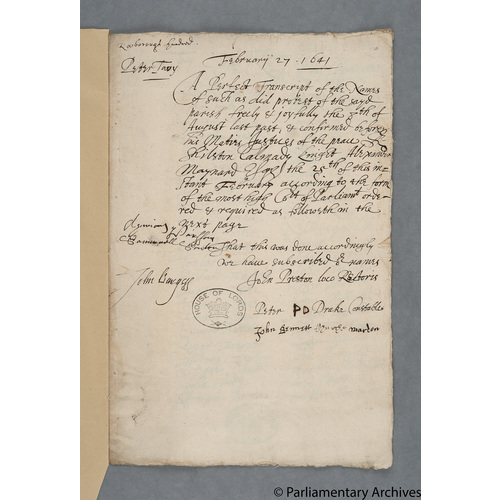 Roxborough hundred
Peter Tavy
February 27 . 1641
A Perfect Transcript of the Names
of such as did protest of the sayd
parish freely & joyfully the 8th of
August last past, & confirmed before
his Maties Justices of the peace
Shilston Calmady Knight Alexander
Maynard Esqr the 25th of this in-
stant February according to the form
of the most high Cort of Parliamt orde-
red & required as followeth in the
Next page
That this was done accordingly
we have subscribed or names
John Burges
John Preston loco Rectoris
HOUSE OF LORDS
Peter P D Drake Constable
John Bennett warden
© Parliamentary Archives